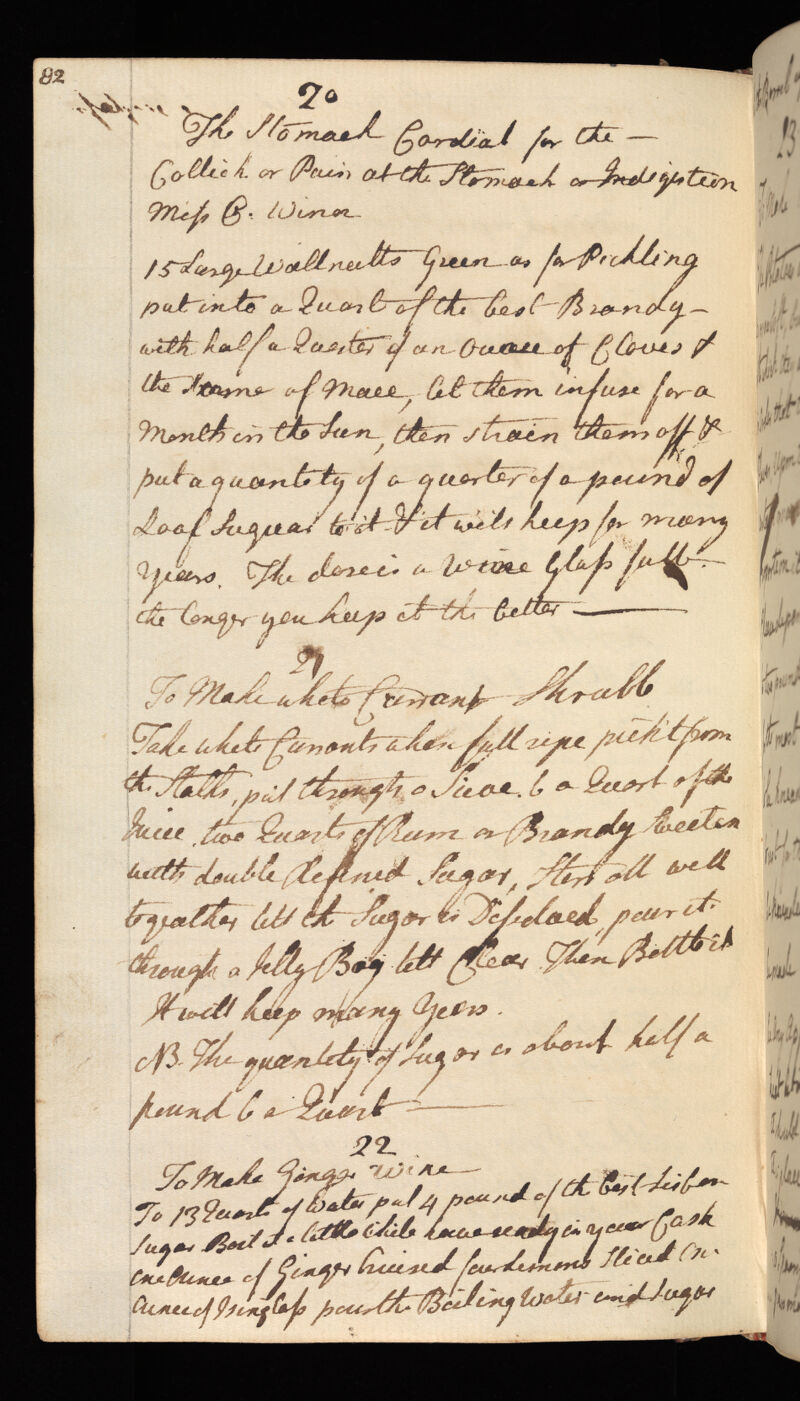 82
20
The Stomach Cordial for the —
Collick or Pain at the Stomach or Indigestion
Miss C. Winn
15 Large Wallnutts Green as for Pickling
put into a Quart of the best Brandy —
with half a Quarter of an Ounce of Cloves &
the same of Mace, let them infuse for a
Month in the Sun, then strain them off &
put a quantity of a quarter of a pound of
Loaf Suguar to it & it will keep for many
Years. The dose is a Wine Glass full —
the longer you keep it the better —
21
To Make white Currant Shrubb
Take white Currants when full ripe pick't from
the Stalks, put through a Sieve. to a Quart of the
Juice, two Quarts of Rum or Brandy Sweeten
with double Refined Sugar, Stirr all well
togeather till the Sugar is Dissolved, pour it
through a Jelly Bag till Clear. Then Bottle it
It will keep many Years.
NB. The quantity of Sugar is about half a
pound to a Quart —
22
To Make Ginger Wine
To 13 Quarts of Water put 4 pound of the best Lisbon
Sugar Boil it a little while have ready in your Cask
one Ounce of Ginger bruised four Lemons Sliced On
Ounce of Isinglass pour the Boiling Water and Sugar